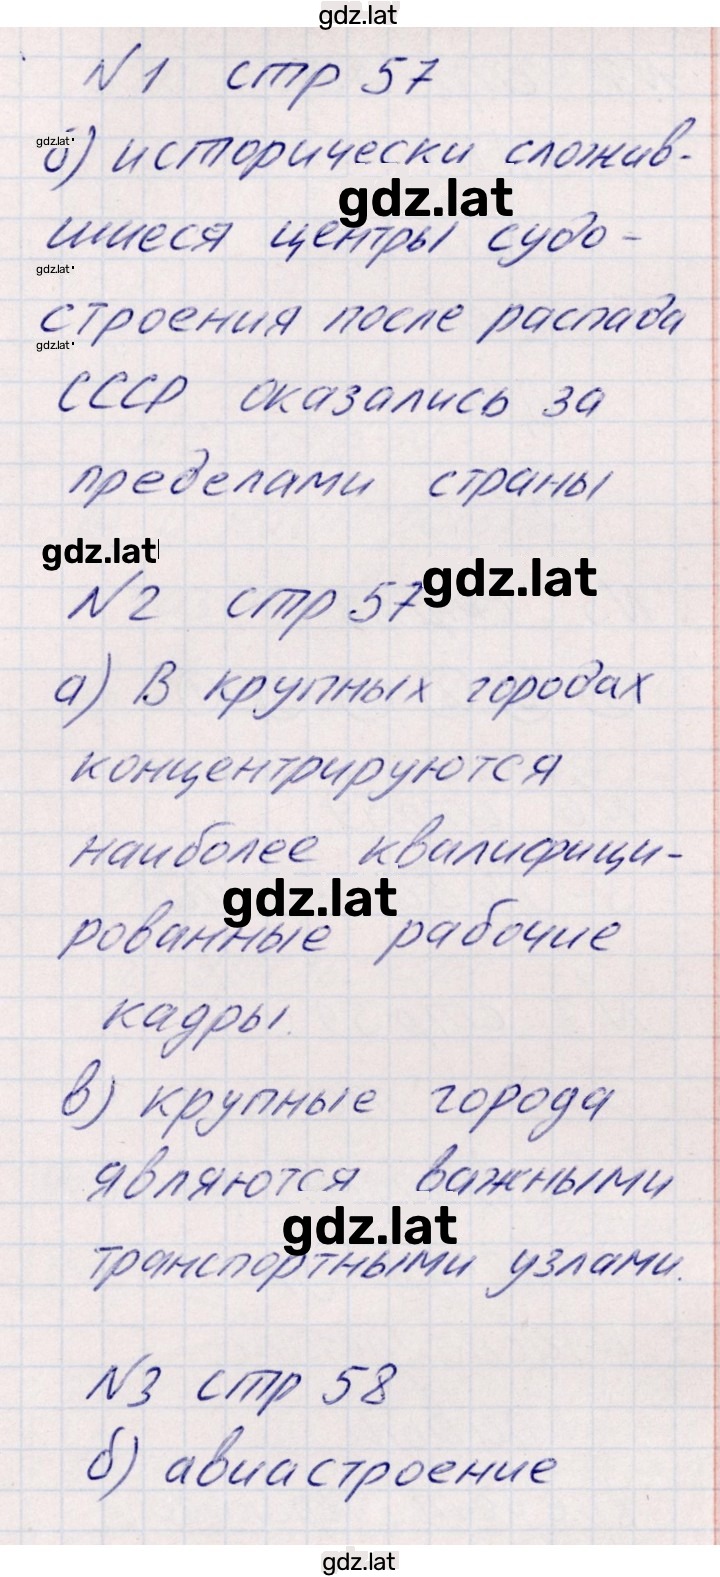 gdz.lat
№1 стр 57
gdz.lat
б) исторически сложив-
gdz.lat
шиеся центры судо-
gdz.lat
строения после распада
gdz.lat
СССР оказались за
пределами страны
gdz.lat
gdz.lat
№2 стр 57
а) В крупных городах
концентрируются
наиболее квалифици-
gdz.lat
рованные рабочие
кадры.
в) крупные города
являются важными
gdz.lat
транспортными узлами.
№3 стр 58
б) авиастроение
gdz.lat